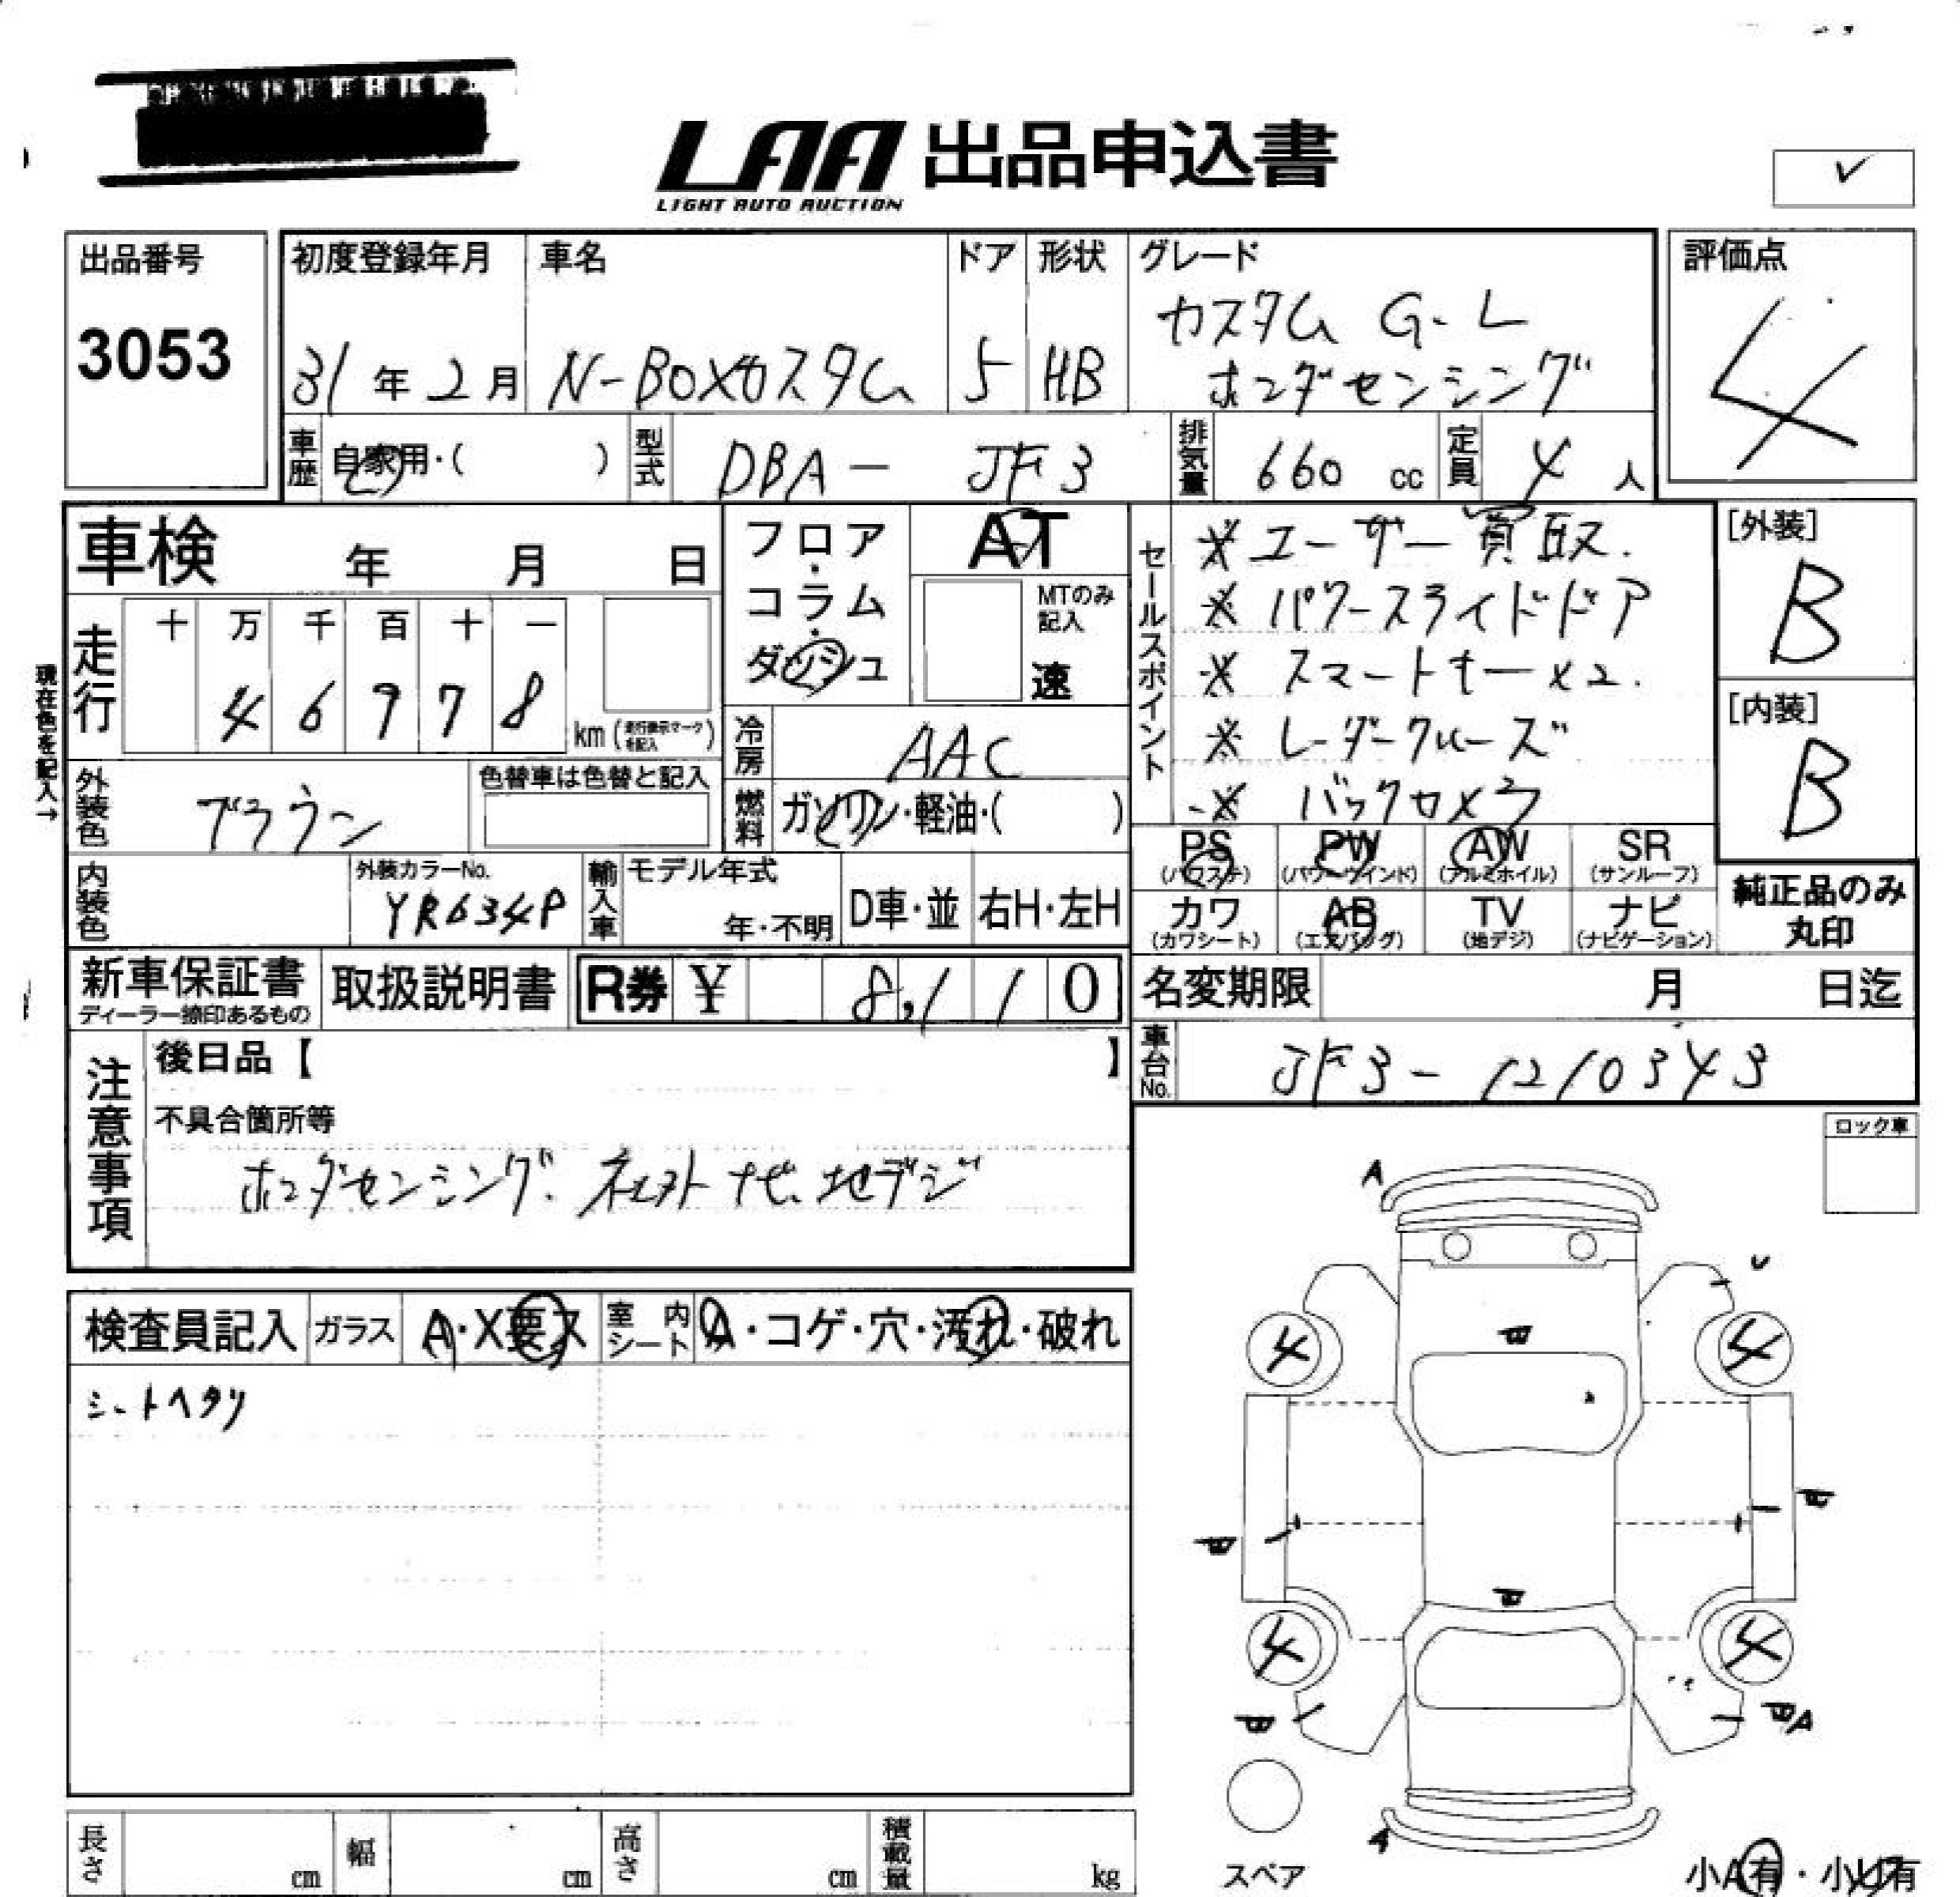 LAA 出品申込書
LIGHT AUTO AUCTION
出品番号 初度登録年月 車名 ドア 形状 グレード 評価点
3053 31年 2月 N-BOXカスタム 5 HB カスタム G・L 4
ホンダセンシング
車歴 自家用・( ) 型式 DBA- JF3 排気量 660 cc 定員 4 人
車検 年 月 日 フロア・コラム・ダッシュ AT
MTのみ記入 速
セールスポイント
※ ユーザー買取.
※ パワースライドドア
※ スマートキー×2.
※ レーダークルーズ
※ バックカメラ
[外装]
B
[内装]
B
現在色を記入→
走行 十 万 千 百 十 一
4 6 9 7 8 km (走行表示マークを記入)
冷房 AAC
外装色 ブラウン 色替車は色替と記入 燃料 ガソリン・軽油・( )
PS (パワステ) PW (パワーウインド) AW (アルミホイル) SR (サンルーフ)
カワ (カワシート) AB (エアバッグ) TV (地デジ) ナビ (ナビゲーション)
純正品のみ丸印
内装色 外装カラーNo. YR634P 輸入車 モデル年式 年・不明 D車・並 右H・左H
新車保証書 取扱説明書 R券 ¥ 8,110 名変期限 月 日迄
ディーラー捺印あるもの
車台No. JF3-1210343
注意事項 後日品【 】
不具合箇所等
ホンダセンシング. ネクストナビ. 地デジ
ロック車
検査員記入 ガラス A・X要ス 室内シート A・コゲ・穴・汚れ・破れ
シートヘタリ
A
U
4 4
4 4
A
A
スペア
小A有・小U有
長さ cm 幅 cm 高さ cm 積載量 kg